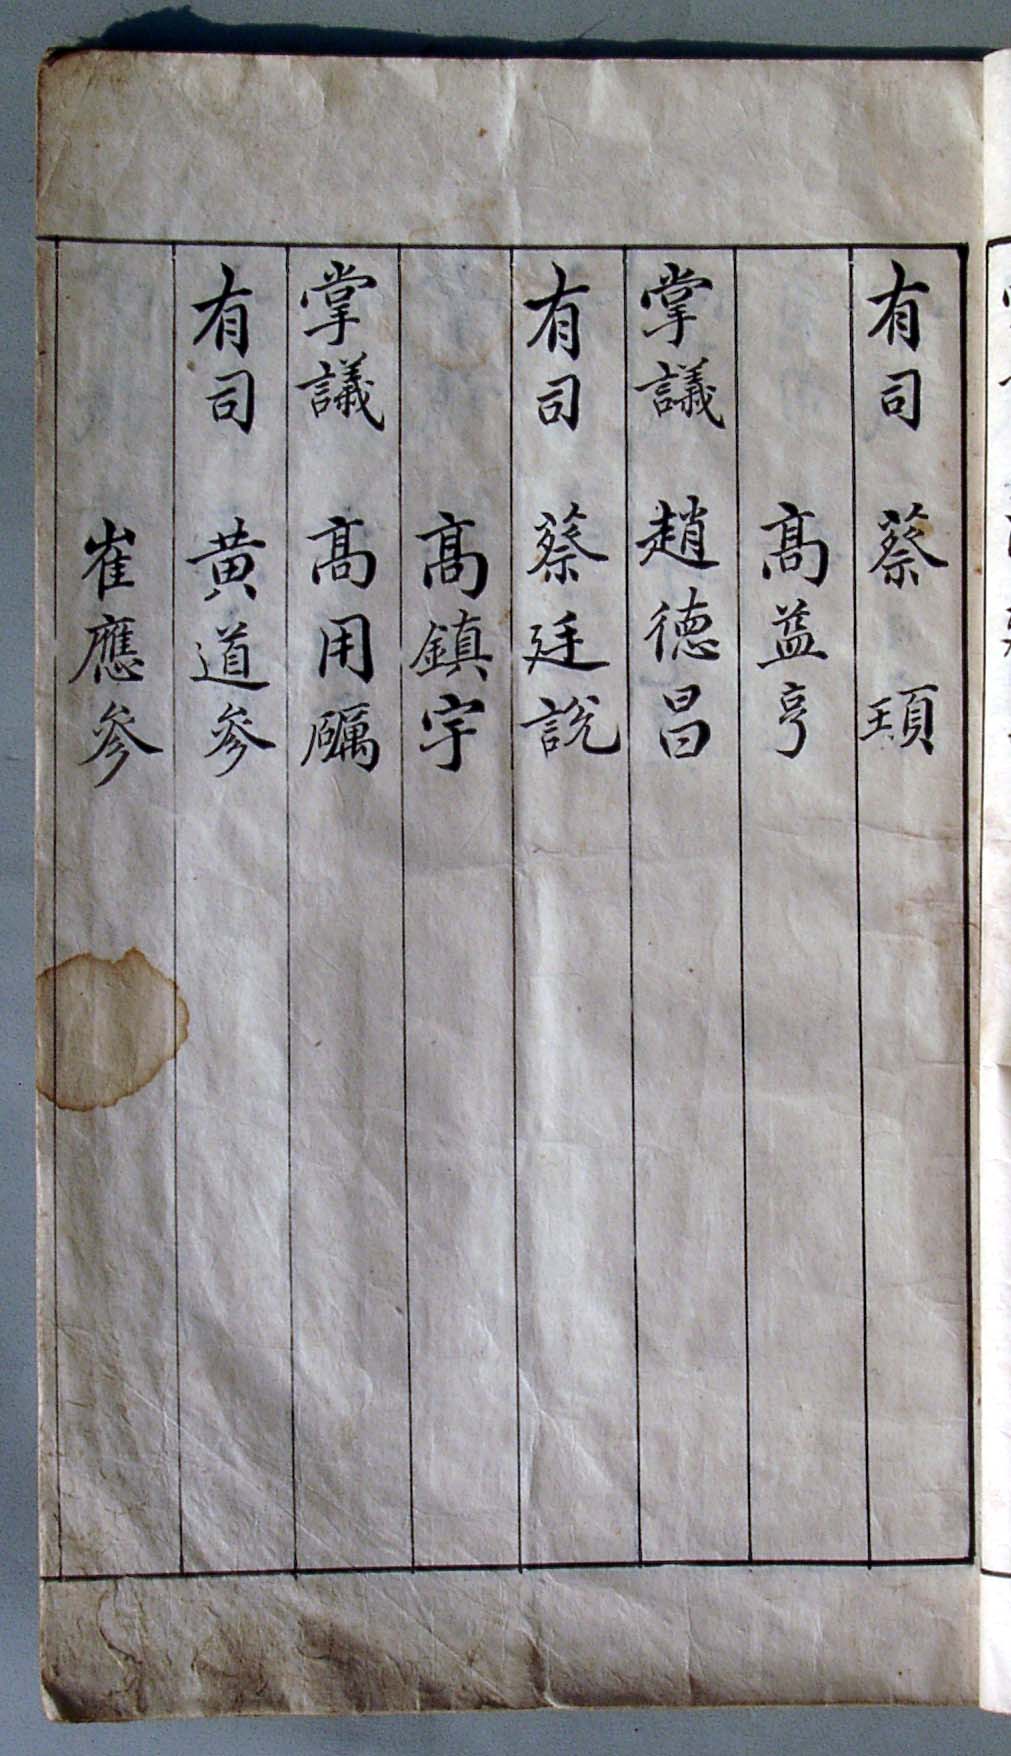 有司 蔡頊
高益亨
掌議 趙德昌
有司 蔡廷說
高鎮宇
掌議 高用礪
有司 黄道參
崔應參